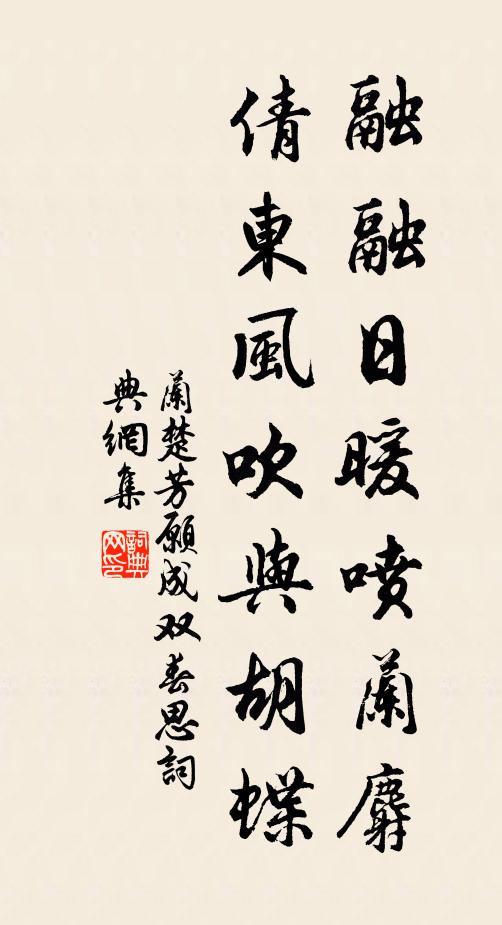 融融日暖噴蘭麝
倩東風吹與胡蝶
蘭楚芳願成双春思詞
典網集
詞典
网印